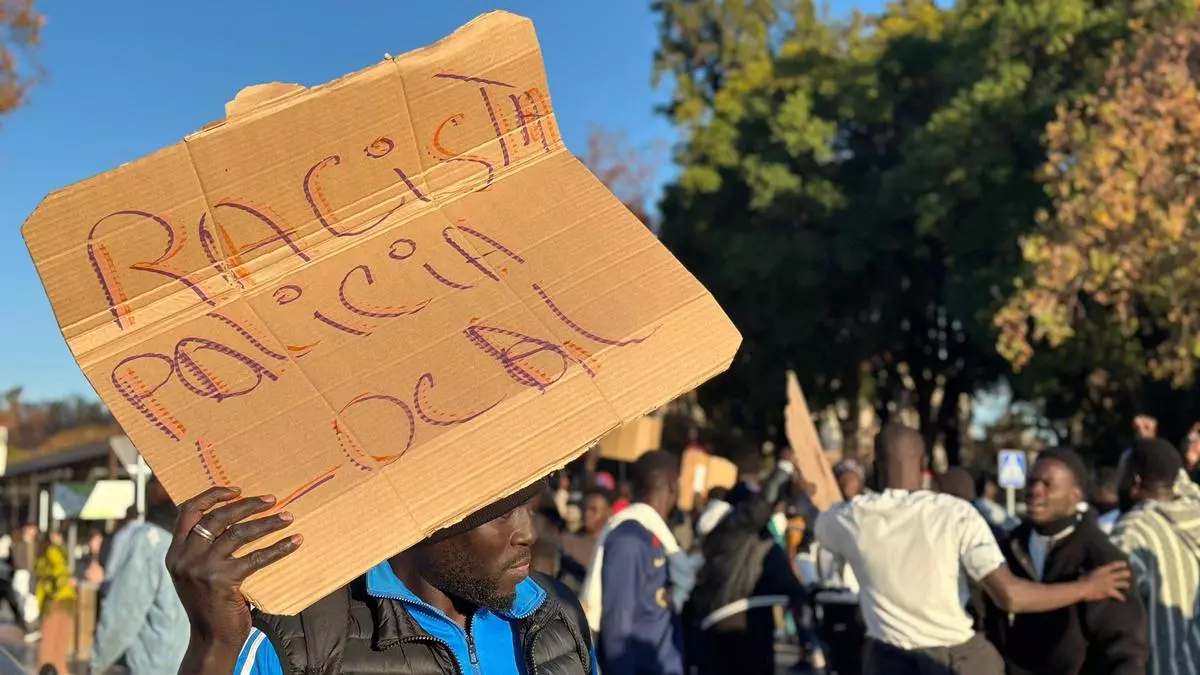 RACiSTA
POLiCiA
LOCAL